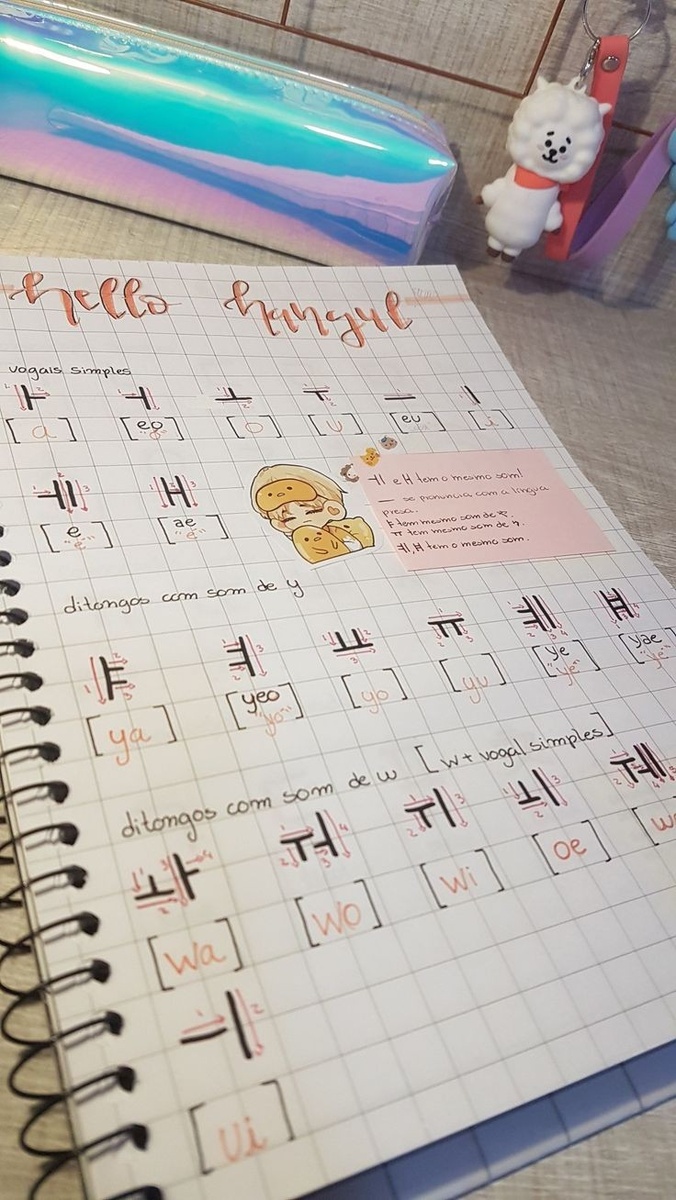 hello hangul
vogais simples
ㅏ ㅓ ㅗ ㅜ ㅡ ㅣ
[a] [eo] [o] [u] [eu] [i]
ㅔ ㅐ
[e] [ae]
ㅔ e ㅐ tem o mesmo som!
ㅡ se pronuncia com a língua
presa.
tem mesmo som de
ㅠ tem mesmo som de
tem o mesmo som.
ditongos com som de y
ㅑ ㅕ ㅛ ㅠ ㅖ ㅒ
[ya] [yeo "yo"] [yo] [yu] [ye "ye"] [yae "ye"]
ditongos com som de w [w + vogal simples]
ㅘ ㅝ ㅟ ㅚ ㅞ
[wa] [wo] [wi] [oe]
ㅢ
[ui]